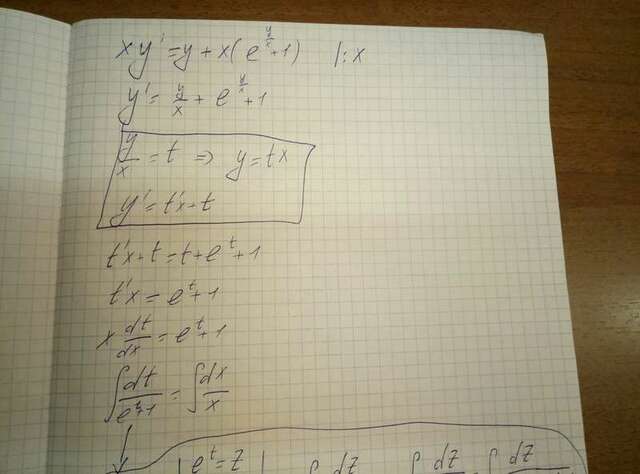 xy' = y + x(e^{y/x} + 1) |:x
y' = y/x + e^{y/x} + 1
y/x = t ⇒ y = tx
y' = t'x + t
t'x + t = t + e^t + 1
t'x = e^t + 1
x dt/dx = e^t + 1
∫ dt/(e^t+1) = ∫ dx/x
| e^t = z | ∫ dz ∫ dz ∫ dz